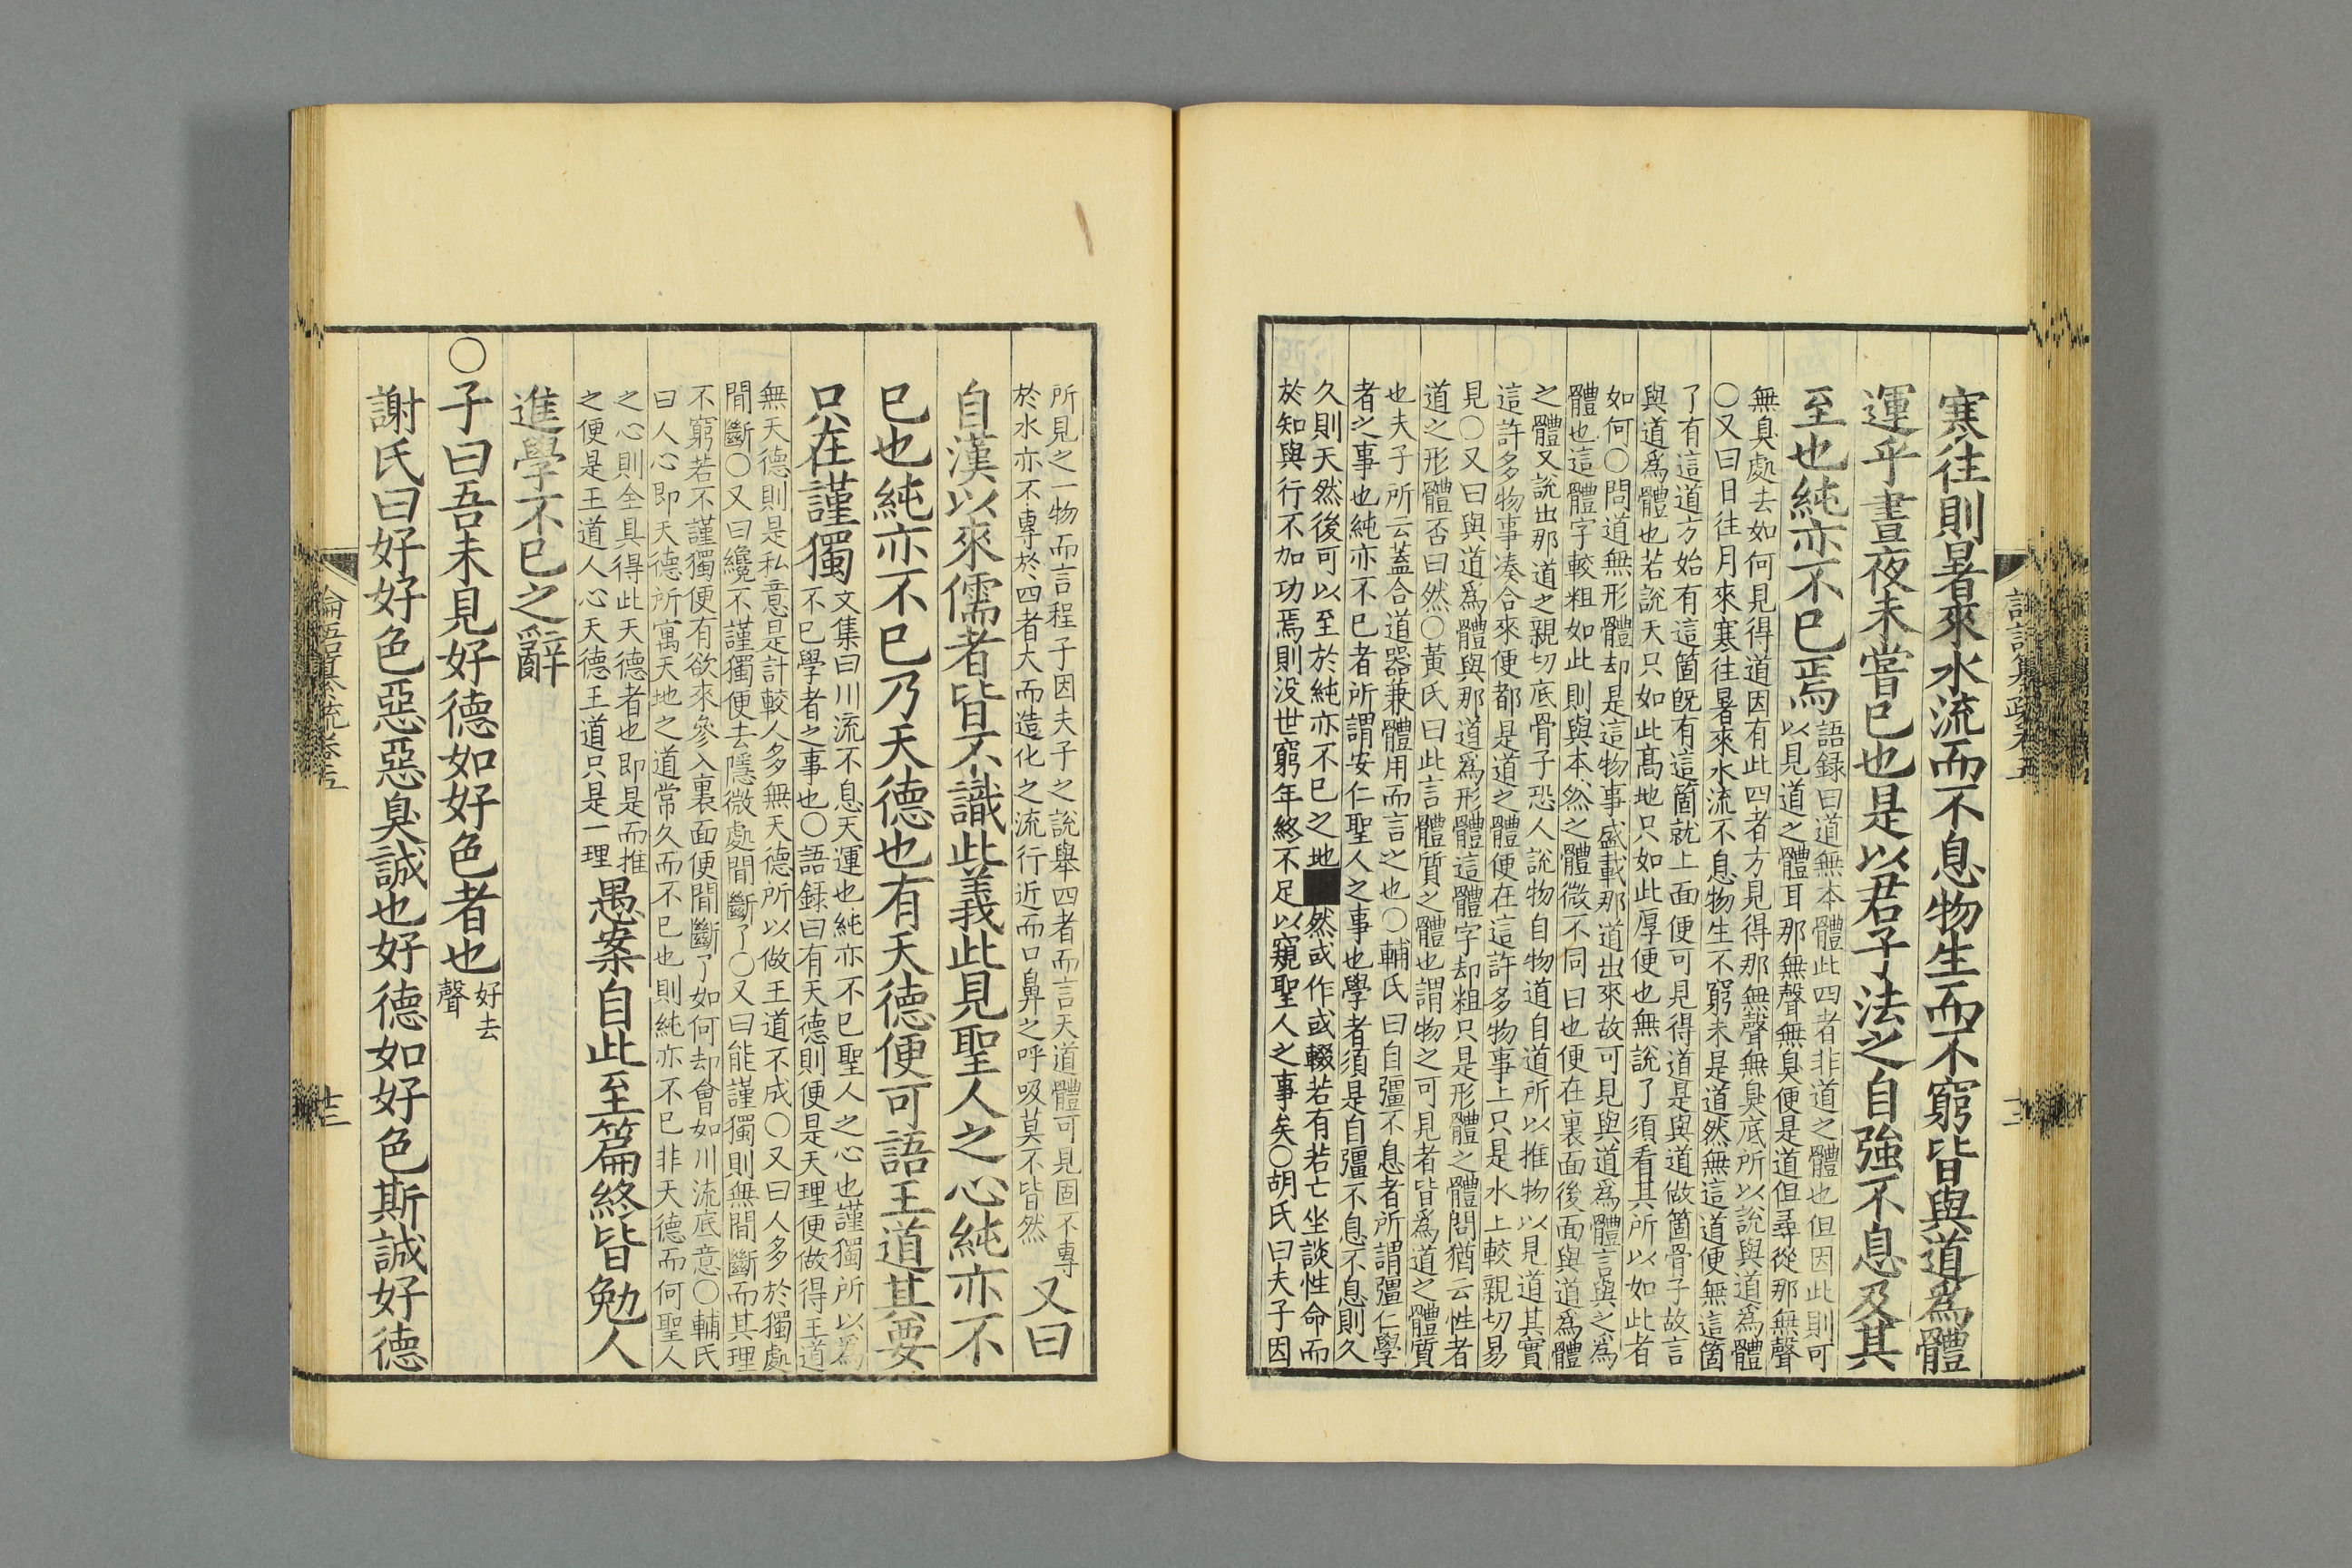 寒往則暑來水流而不息物生而不窮皆與道爲體
運乎晝夜未嘗已也是以君子法之自強不息及其
至也純亦不已焉
語録曰道無本體此四者非道之體也但因此則可
以見道之體耳那無聲無臭便是道但尋從那無聲
無臭處去如何見得道因有此四者方見得那無聲無臭底所以說與道爲體
○又曰日往月來寒往暑來水流不息物生不窮未是道然無這道便無這箇
了有這道方始有這箇旣有這箇就上面便可見得道是與道做箇骨子故言
與道爲體也若說天只如此髙地只如此厚便也無說了須看其所以如此者
如何○問道無形體却是這物事盛載那道出來故可見與道爲體言與之爲
體也這體字較粗如此則與本然之體微不同曰也便在裏面後面與道爲體
之體又說出那道之親切底骨子恐人說物自物道自道所以推物以見道其實
這許多物事凑合來便都是道之體便在這許多物事上只是水上較親切易
見○又曰與道爲體與那道爲形體這體字却粗只是形體之體問猶云性者
道之形體否曰然○黃氏曰此言體質之體也謂物之可見者皆爲道之體質
也夫子所云蓋合道器兼體用而言之也○輔氏曰自彊不息者所謂彊仁學
者之事也純亦不已者所謂安仁聖人之事也學者須是自彊不息不息則久
久則天然後可以至於純亦不已之地■然或作或輟若有若亡坐談性命而
於知與行不加功焉則没世窮年終不足以窺聖人之事矣○胡氏曰夫子因
所見之一物而言程子因夫子之說舉四者而言天道體可見固不專
於水亦不專於四者大而造化之流行近而口鼻之呼吸莫不皆然
又曰
自漢以來儒者皆不識此義此見聖人之心純亦不
已也純亦不已乃天德也有天德便可語王道其要
只在謹獨
文集曰川流不息天運也純亦不已聖人之心也謹獨所以爲
不已學者之事也○語録曰有天德則便是天理便做得王道
無天德則是私意是計較人多無天德所以做王道不成○又曰人多於獨處
間斷○又曰纔不謹獨便去隱微處間斷了○又曰能謹獨則無間斷而其理
不窮若不謹獨便有欲來參入裏面便間斷了如何却會如川流底意○輔氏
曰人心即天德所寓天地之道常久而不已也則純亦不已非天德而何聖人
之心則全具得此天德者也即是而推
之便是王道人心天德王道只是一理
愚案自此至篇終皆勉人
進學不已之辭
○子曰吾未見好德如好色者也
好去
聲
謝氏曰好好色惡惡臭誠也好德如好色斯誠好德
論語纂疏卷五
十三